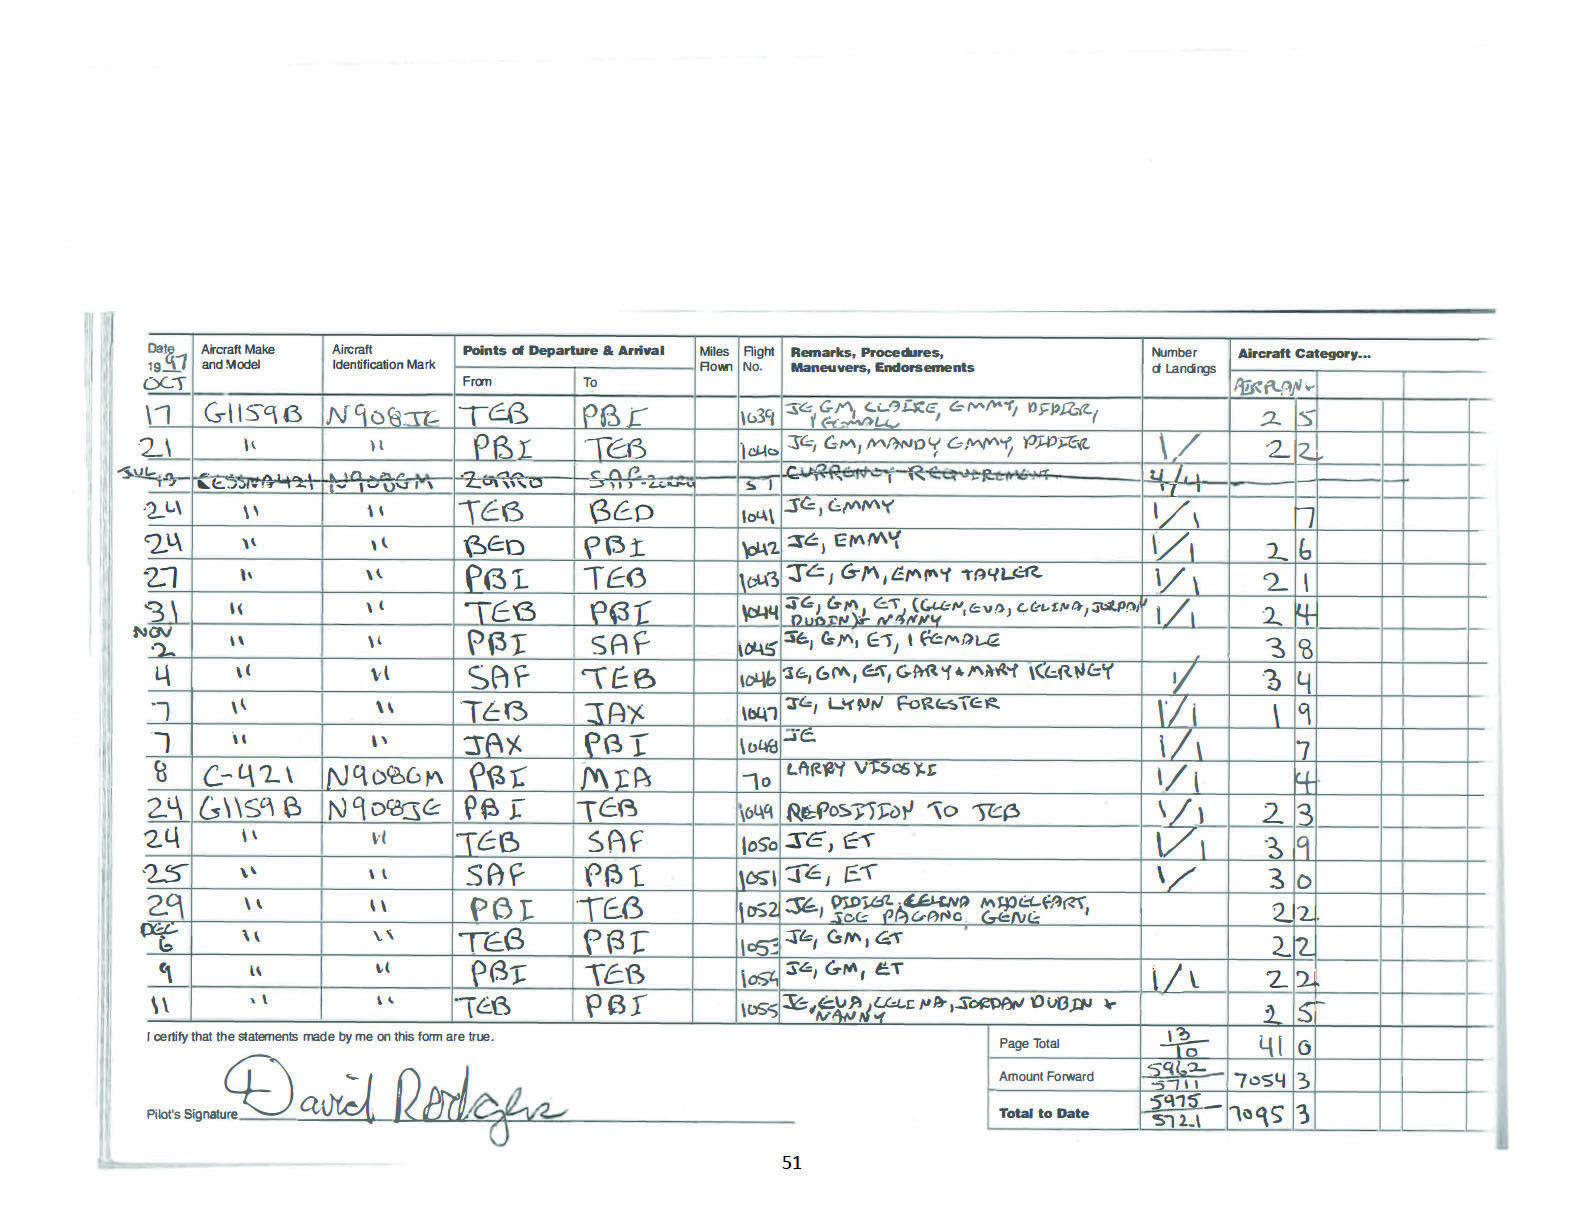 Date Aircraft Make Aircraft Points of Departure & Arrival Miles Flight Remarks, Procedures, Number Aircraft Category...
1997 and Model Identification Mark From To Flown No. Maneuvers, Endorsements of Landings
OCT AIRPLANE
17 G1159B N908JE TEB PBI 1039 JE, GM, CLAIRE, EMMY, DIDIER, 2 5
1 FEMALE
21 " " PBI TEB 1040 JE, GM, MANDY EMMY, DIDIER 1/ 2 2
JUL 13 CESSNA421 N908GM ZORRO SAF-ZORRO 57 CURRENCY REQUIREMENT 4/4
24 " " TEB BED 1041 JE, EMMY 1/1 7
24 " " BED PBI 1042 JE, EMMY 1/1 2 6
27 " " PBI TEB 1043 JE, GM, EMMY TAYLER 1/1 2 1
31 " " TEB PBI 1044 JE, GM, ET, (GLEN, EVA, CELINA, JORDAN 1/1 2 4
DUBIN)+ NANNY
NOV
2 " " PBI SAF 1045 JE, GM, ET, 1 FEMALE 3 8
4 " " SAF TEB 1046 JE, GM, ET, GARY + MARY KERNEY 1/ 3 4
7 " " TEB JAX 1047 JE, LYNN FORESTER 1/1 1 9
7 " " JAX PBI 1048 JE 1/1 7
8 C-421 N908GM PBI MIA 70 LARRY VISOSKI 1/1 4
24 G1159B N908JE PBI TEB 1049 REPOSITION TO TEB 1/1 2 3
24 " " TEB SAF 1050 JE, ET 1/1 3 9
25 " " SAF PBI 1051 JE, ET 1/ 3 0
29 " " PBI TEB 1052 JE, DIDIER, CELINA MIDELFART, 2 2
JOE PAGANO, GENE
DEC
6 " " TEB PBI 1053 JE, GM, ET 2 2
9 " " PBI TEB 1054 JE, GM, ET 1/1 2 2
11 " " TEB PBI 1055 JE, EVA, CELINA, JORDAN DUBIN + 2 5
NANNY
I certify that the statements made by me on this form are true.
Page Total 13/10 41 0
Amount Forward 5962/5711 7054 3
Total to Date 5975/5721 7095 3
Pilot's Signature David Rodgers
51